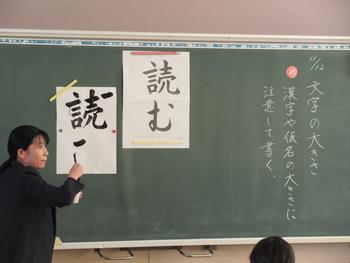 11/12 文字の大きさ
め 漢字や仮名の大きさに
注意して書く。
読む
読